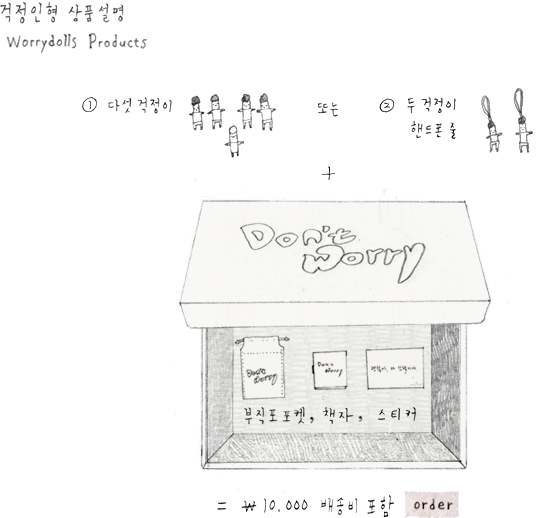 걱정인형 상품설명
Worrydolls Products
① 다섯 걱정이 또는 ② 두 걱정이
핸드폰 줄
+
Don't
Worry
Don't
Worry
Don't
Worry
부직포포켓, 책자, 스티커
= ₩10.000 배송비 포함 order